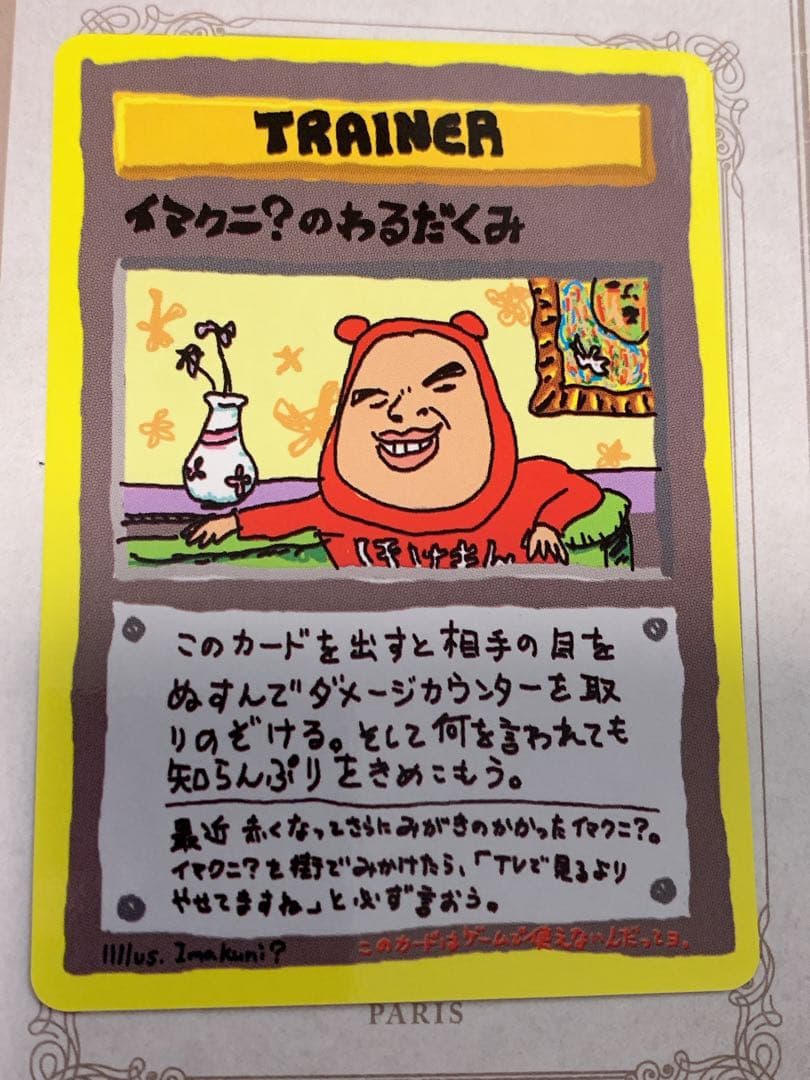 TRAINER
イマクニ?のわるだくみ
ぽけもん
このカードを出すと相手の目を
ぬすんでダメージカウンターを取
りのぞける。そして何を言われても
知らんぷりをきめこもう。
最近 赤くなってさらにみがきのかかったイマクニ?。
イマクニ?を街でみかけたら、「TVで見るより
やせてますね」と必ず言おう。
Illus. Imakuni?
このカードはゲームで使えないんだってヨ.
PARIS